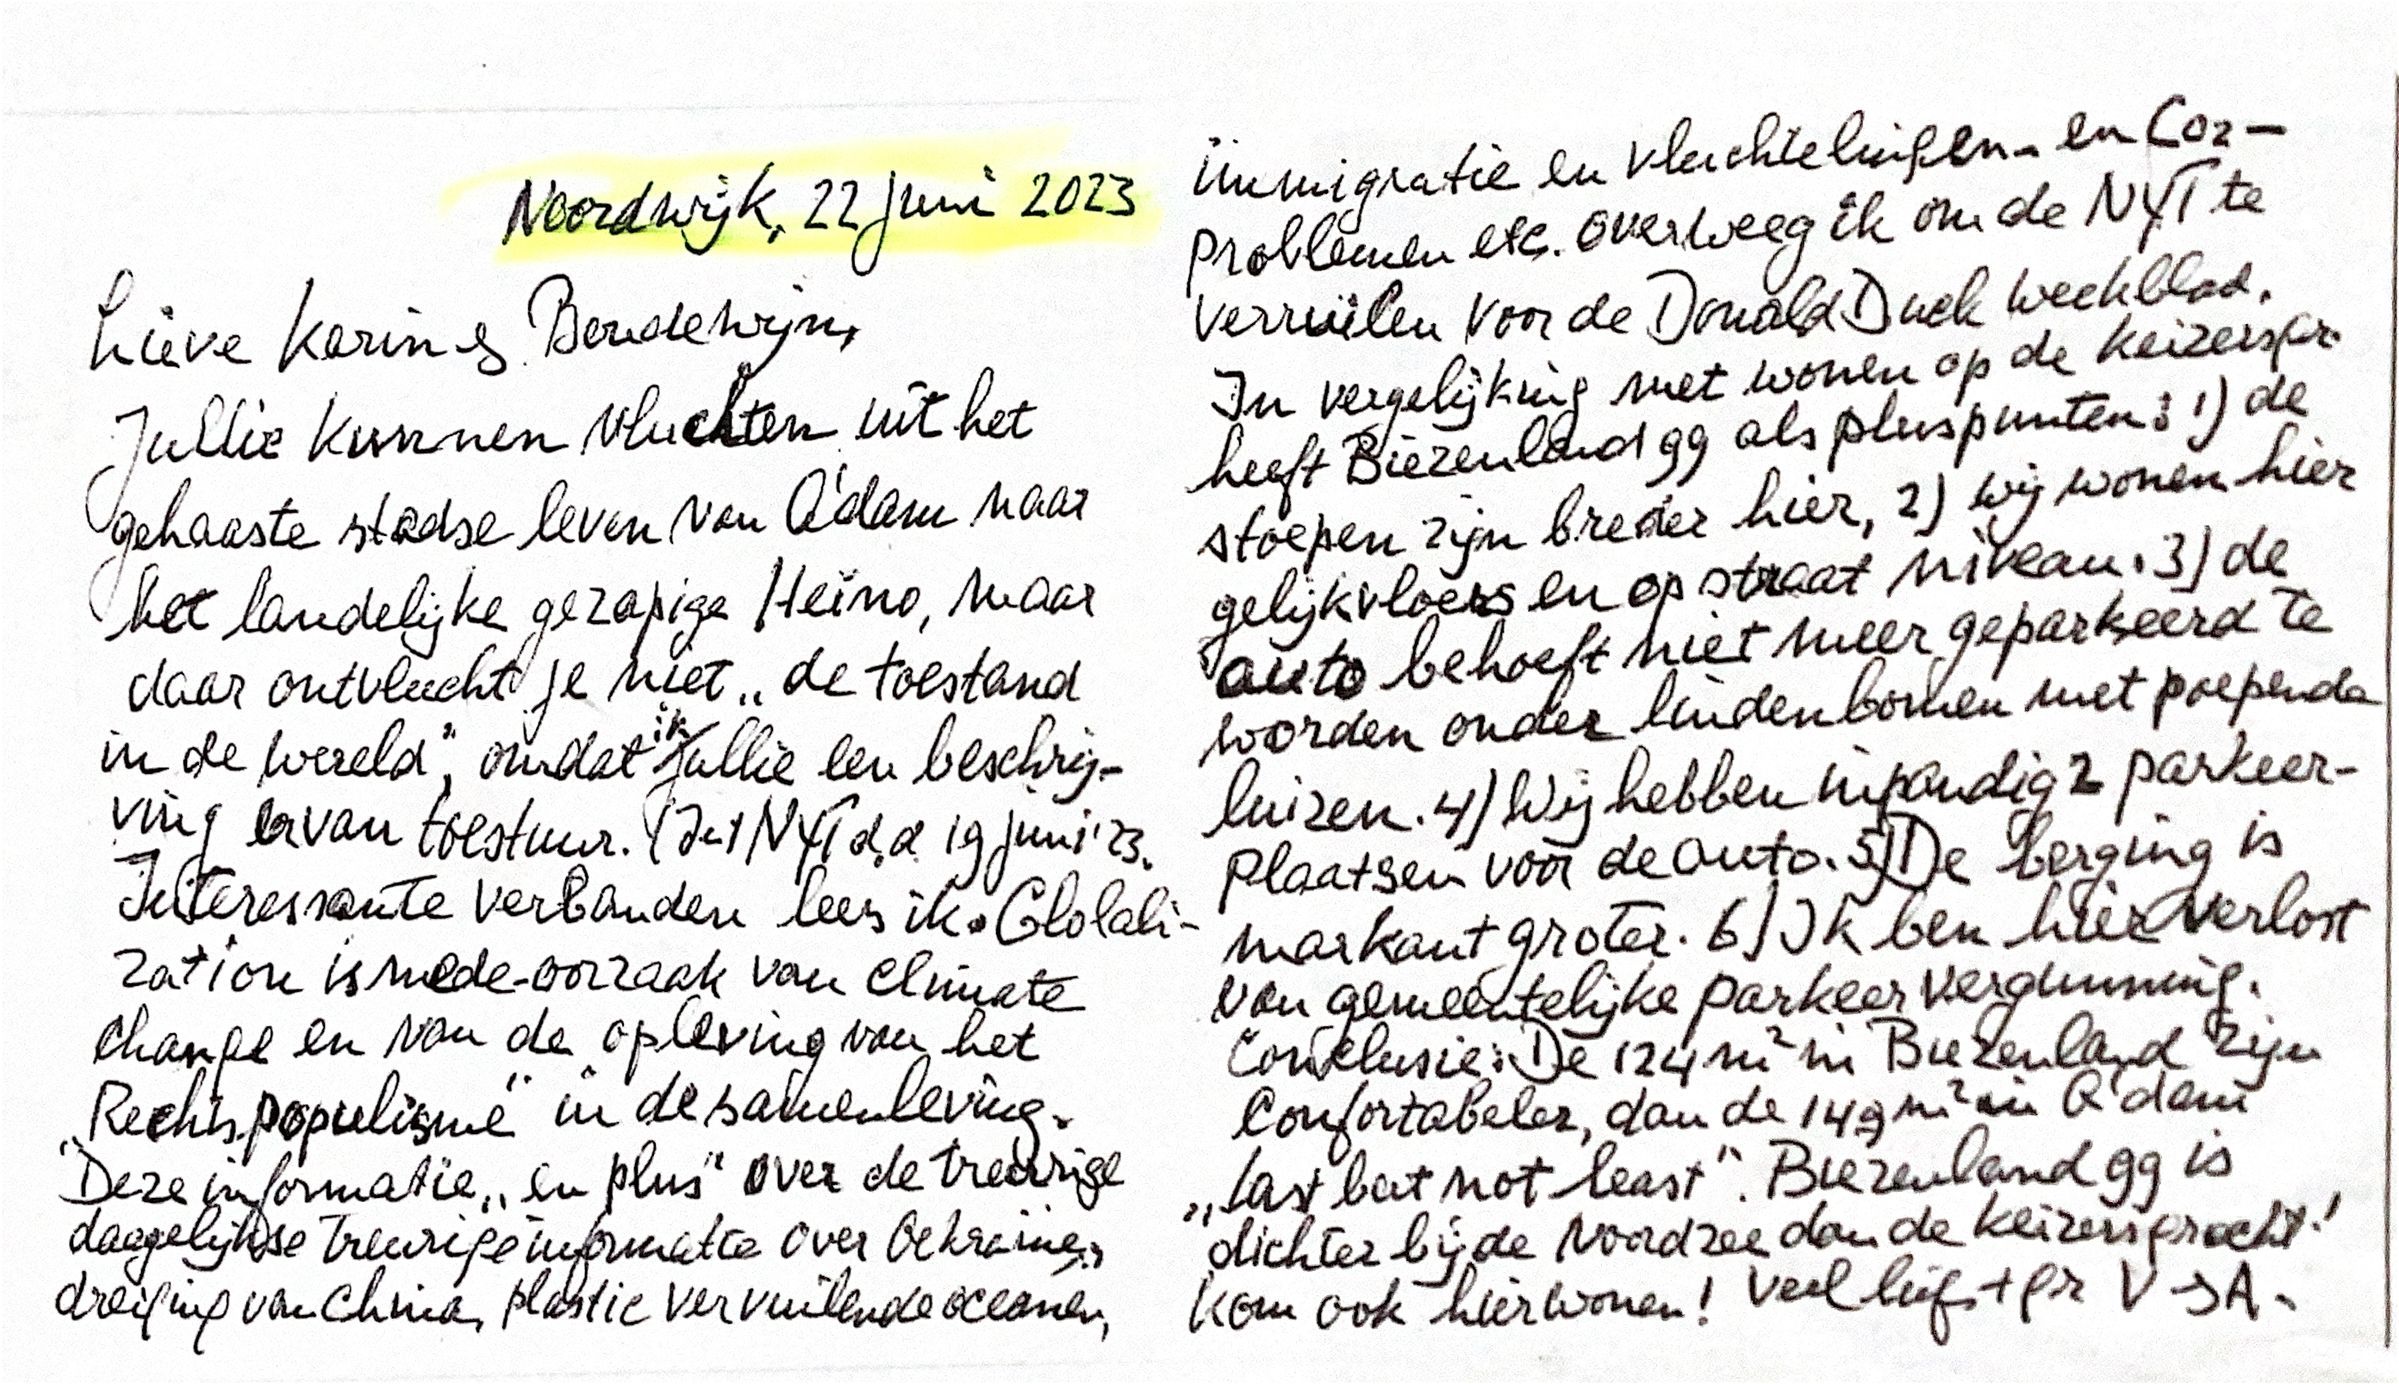 Noordwijk, 22 juni 2023
Lieve Karin & Boudewijn,
Jullie kunnen vluchten uit het
gehaaste stadse leven van A'dam naar
het landelijke gezapige Heino, maar
daar ontvlucht je niet „de toestand
in de wereld", omdat ik jullie een beschrij-
ving ervan toestuur. (Int NYT d.d 19 juni '23.
Interessante verbanden lees ik. Globali-
zation is mede-oorzaak van climate
change en van de opleving van het
„Rechts populisme" in de samenleving.
Deze informatie „en plus" over de treurige
dagelijkse treurige informatie over Oekraine,
dreiging van China, plastic vervuilende oceanen,
immigratie en vluchtelingen- en Co2-
problemen etc. overweeg ik om de NYT te
verruilen voor de Donald Duck weekblad.
In vergelijking met wonen op de Keizersgr.
heeft Biezenland 99 als pluspunten: 1) de
stoepen zijn breder hier, 2) wij wonen hier
gelijkvloers en op straat niveau. 3) de
auto behoeft niet meer geparkeerd te
worden onder lindenbomen met poepende
luizen. 4) Wij hebben inpandig 2 parkeer-
plaatsen voor de auto. 5) De berging is
markant groter. 6) Ik ben hier verlost
van gemeentelijke parkeervergunning.
Conclusie: De 124 m² in Biezenland zijn
confortabeler, dan de 149 m² in A'dam
„last but not least". Biezenland 99 is
dichter bij de Noordzee dan de Keizersgracht!
Kom ook hier wonen! Veel liefs + gr V → A.